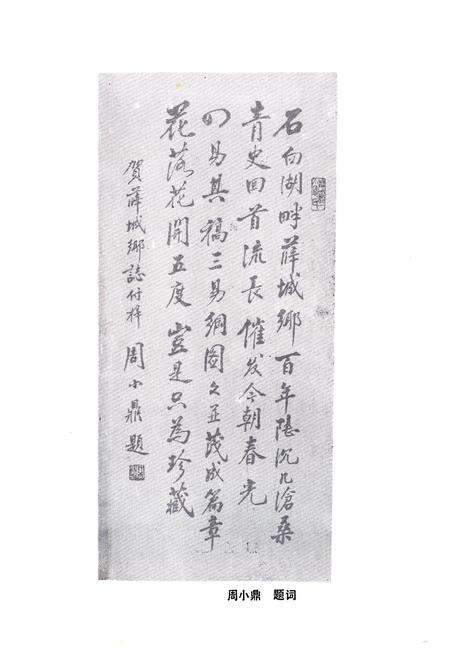 石臼湖畔薛城鄉百年陸沉几滄桑
青史回首流長催发今朝春光
四易其稿三易綱圖文並茂成篇章
花落花開五度豈是只為珍藏
賀薛城鄉誌付梓 周小鼎題
周小鼎 题词